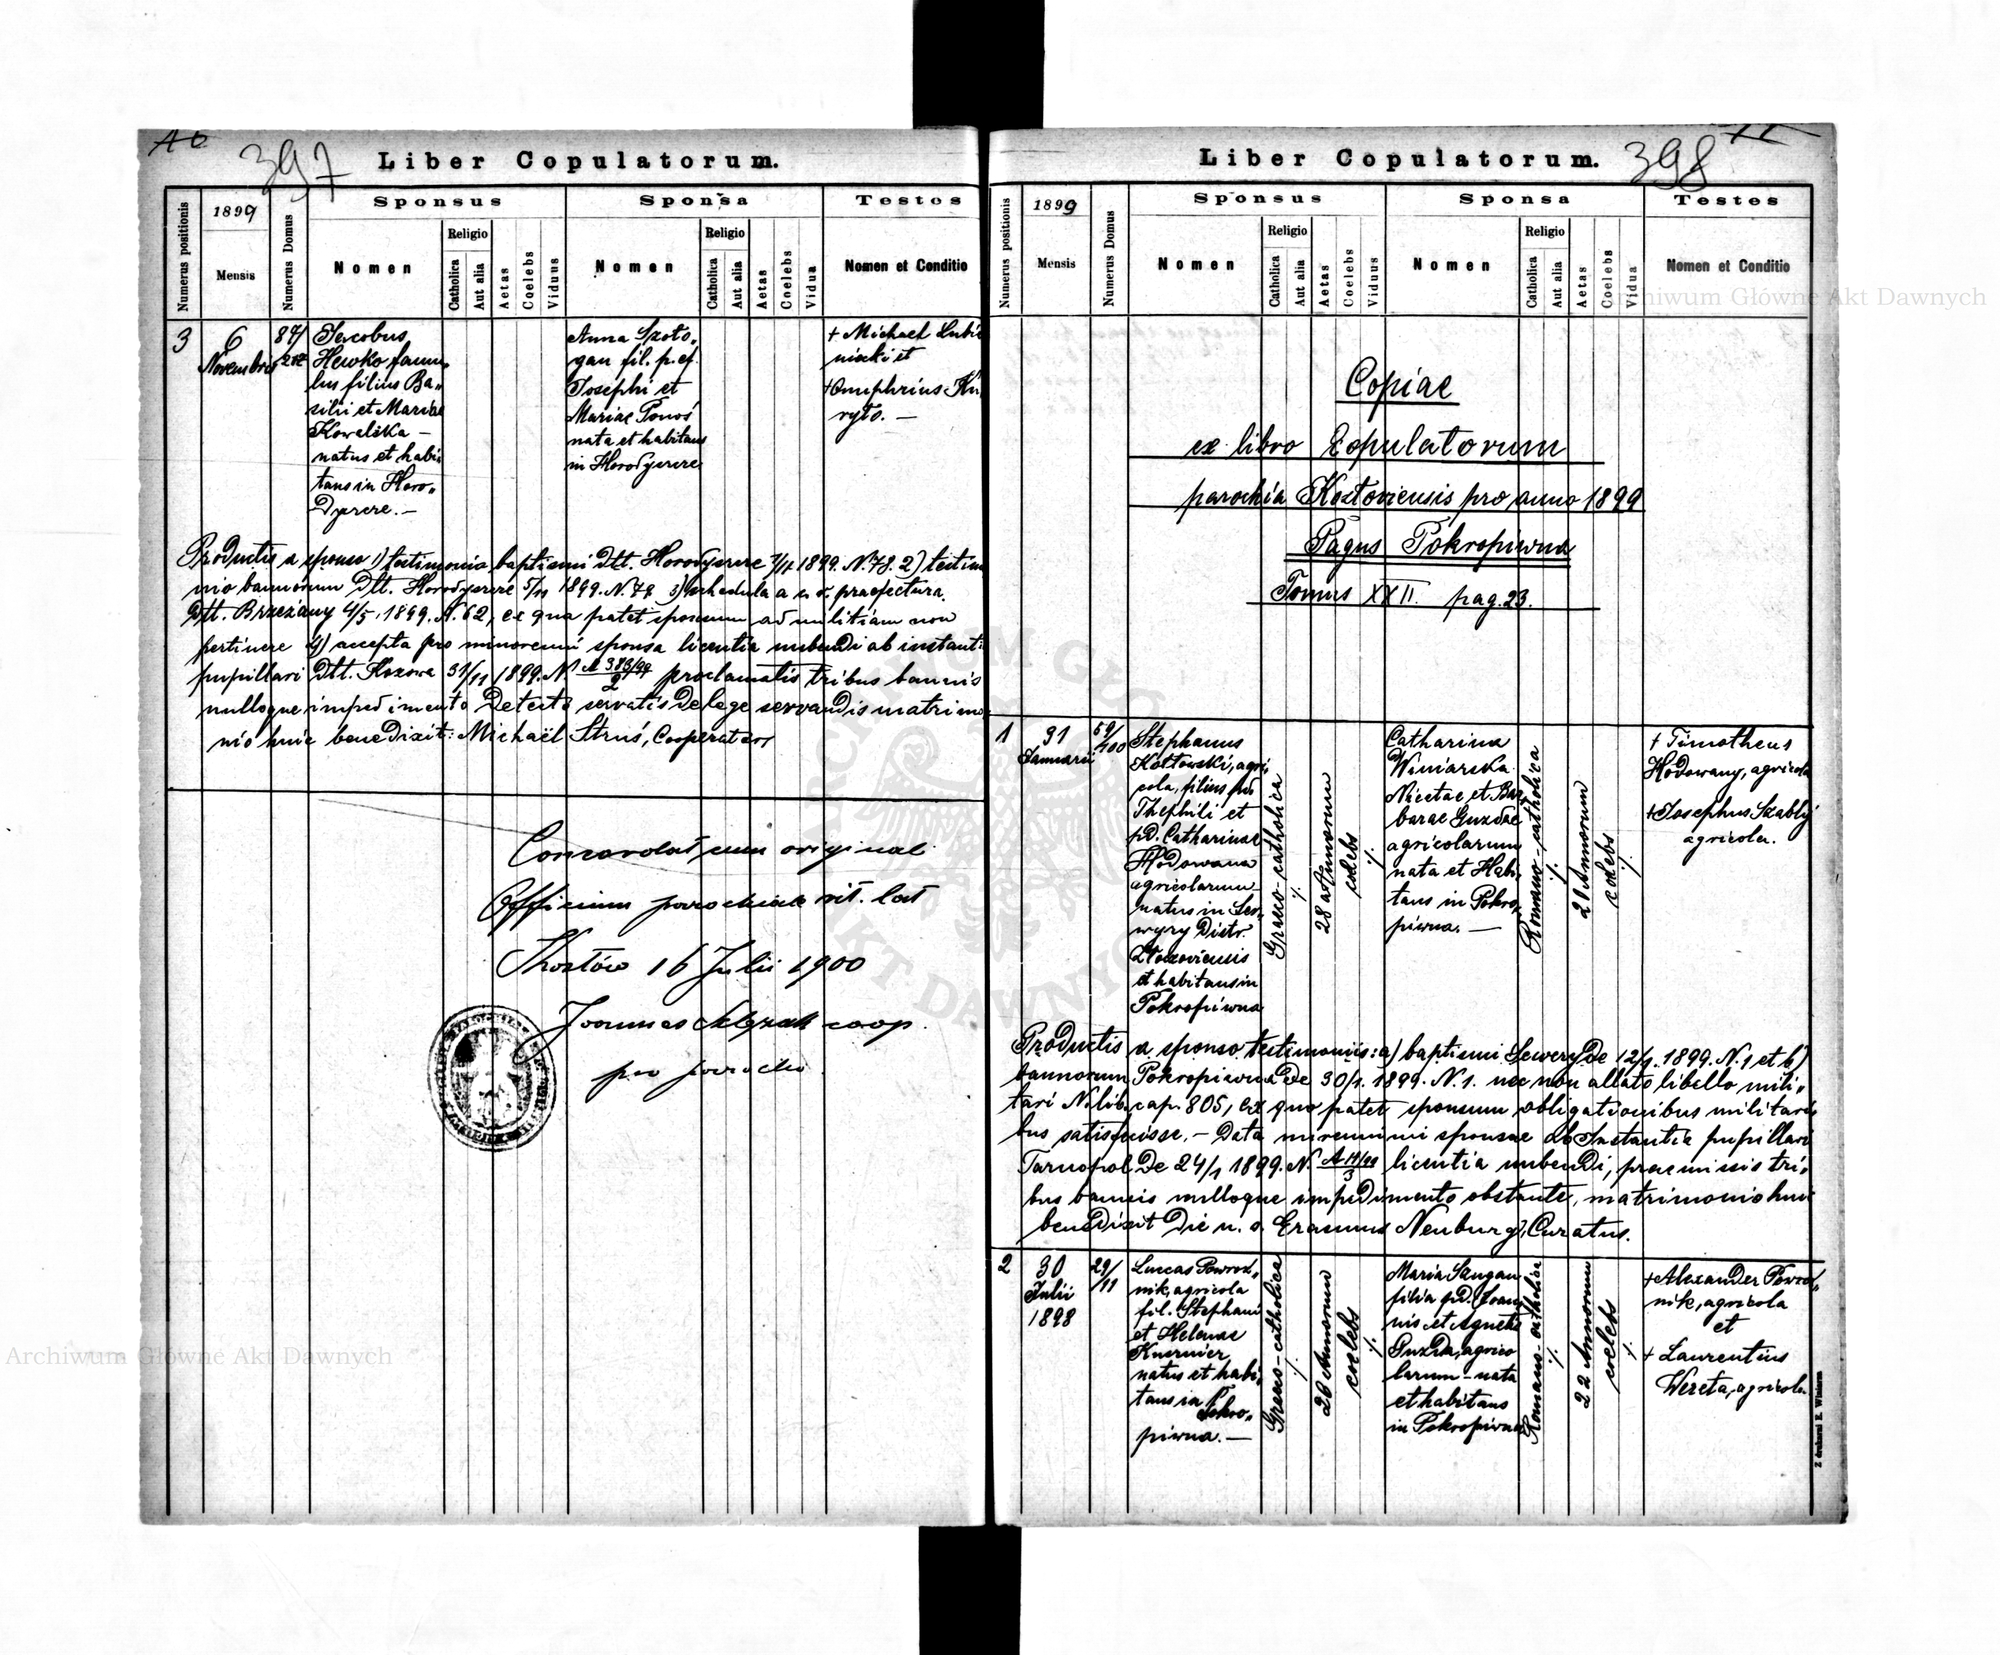 397
Liber Copulatorum.
Numerus positionis
1899
Mensis
Numerus Domus
Sponsus
Nomen
Religio
Catholica
Aut alia
Aetas
Coelebs
Viduus
Sponsa
Nomen
Religio
Catholica
Aut alia
Aetas
Coelebs
Vidua
Testes
Nomen et Conditio
3
6
Novembris
87/
Jacobus
Hewko famu„
lus filius Ba„
silii et Mariae
Kowalska —
natus et habi„
tans in Horo„
Anna Szoto„
gan fil. p. ef.
Josephi et
Mariae Ponoś
nata et habitans
in
+ Michael Lubi
niecki et
+ Onuphrius Ku
ryto. —
Productis a sponso 1) testimonio baptismi dtt. 1899. N. 78. 2) testim
nio bannorum dtt. 5/11 1899. N. 78 3) schedula a praefectura
dtt. Brzeżany 4/5. 1899. N. 62, ex qua patet sponsum ad militiam non
pertinere 4) accepta pro minorenni sponsa licentia nubendi ab instanti
pupillari dtt. Kozowa 31/11 1899. N. A 383/99
2
proclamatis tribus bannis
nulloque impedimento detecto servatis de lege servandis matrimo
nio huic benedixit: Michaël Struś, Cooperator
Concordat cum originali
Officium parochiale rit. lat
16 Julii 1900
Joannes coop.
pro parocho
398
Liber Copulatorum.
Numerus positionis
1899
Mensis
Numerus Domus
Sponsus
Nomen
Religio
Catholica
Aut alia
Aetas
Coelebs
Viduus
Sponsa
Nomen
Religio
Catholica
Aut alia
Aetas
Coelebs
Vidua
Testes
Nomen et Conditio
Copiae
ex libro Copulatorum
parochia Koztoviensis pro anno 1899
Pagus Pokropiwna
Tomus XXII. pag. 23.
1
31
Januarii
59/
100
Stephanus
Kotłowski, agri„
cola, filius pd
Thephili et
pd. Catharinae
Hodowana
agricolarum
natus in Se„
wyry Distr.
Złoczoviensis
et habitans in
Pokropiwna
Graeco-catholica
⁒
28 Annorum
coelebs
⁒
Catharina
Winiarska
Nicetae et Bar
barae Guzdae
agricolarum
nata et Habi„
tans in Pokro„
piwna. —
Romano-catholica
⁒
21 Annorum
coelebs
⁒
+ Timotheus
Hodowany, agricola
+ Josephus Szabły
agricola.
Productis a sponso testimoniis: a) baptismi Sewery de 12/1. 1899. N. 1 et b)
bannorum Pokropiwna de 30/1. 1899. N. 1. nec non allato libello mili„
tari N. lib. cap. 805, ex quo patet sponsum obligationibus militari„
bus satisfuisse. — Data minorenni sponsae ab Instantia pupillari
Tarnopol de 24/1 1899. N. A 14/99
3
licentia nubendi, praemissis tri„
bus bannis nulloque impedimento obstante, matrimonio huic
benedixit die u. s. Erasmus Neuburg, Curatus.
2
30
Julii
1898
29/
11
Luccas Powroz„
nik, agricola
fil. Stephani
et Helenae
Kusznier
natus et habi„
tans in
Pokro„
piwna. —
Graeco-catholica
⁒
26 Annorum
coelebs
⁒
Maria Szugan
filia pd. Joan
nis et Agnetis
Guzda, agrico
larum - nata
et habitans
in Pokropiwna
Romano-catholica
⁒
22 Annorum
coelebs
⁒
+ Alexander Powroź„
nik, agricola
et
+ Laurentius
Wereta, agricola
Z drukarni E. Winiarza
Archiwum Główne Akt Dawnych
Archiwum Główne Akt Dawnych
ARCHIWUM GŁÓWNE AKT DAWNYCH